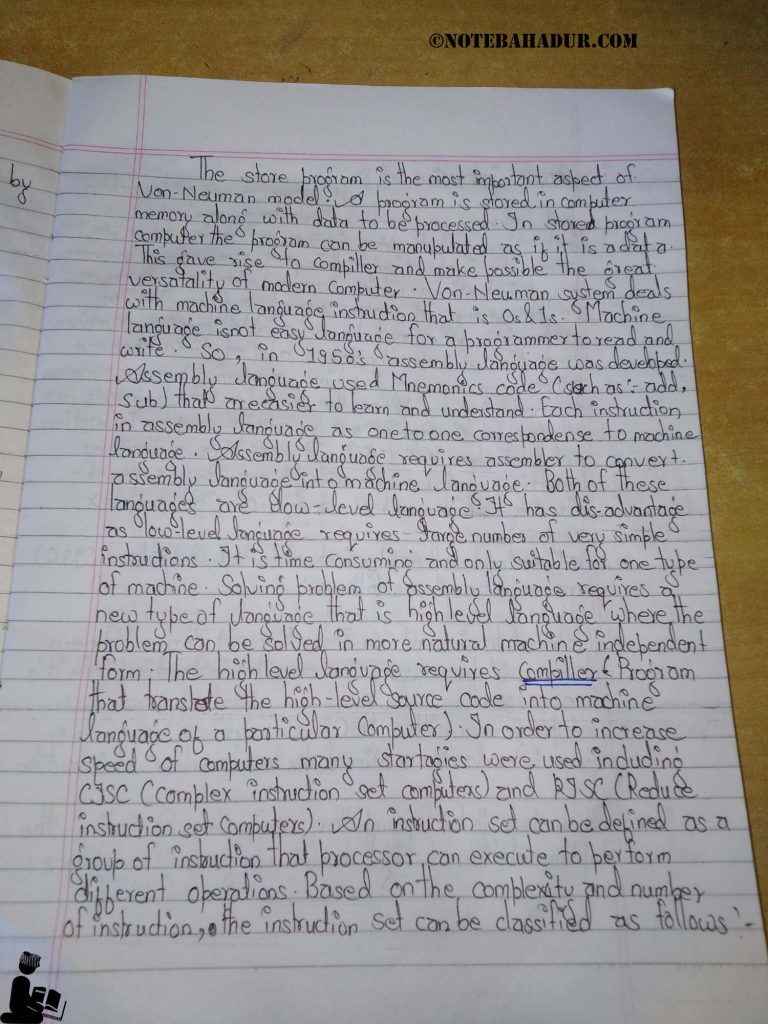 ©NOTEBAHADUR.COM
by
The store program is the most important aspect of
Von-Neuman model. A program is stored in computer
memory along with data to be processed. In stored program
computer the program can be manupulated as if it is a data.
This gave rise to compiller and make possible the great
versatality of modern computer. Von-Neuman system deals
with machine language instruction that is 0s & 1s. Machine
language is not easy language for a programmer to read and
write. So, in 1950's assembly language was developed.
Assembly language used Mnemonics code (such as:- add,
sub) that are easier to learn and understand. Each instruction
in assembly language as one to one correspondense to machine
language. Assembly language requires assembler to convert
assembly language into machine language. Both of these
languages are low-level language. It has dis-advantage
as low-level language requires large number of very simple
instructions. It is time consuming and only suitable for one type
of machine. Solving problem of assembly language requires a
new type of language that is high level language where the
problem can be solved in more natural machine independent
form. The high level language requires compiller (Program
that translate the high-level source code into machine
language of a particular computer). In order to increase
speed of computers many startagies were used including
CISC (complex instruction set computers) and RISC (Reduce
instruction set computers). An instruction set can be defined as a
group of instruction that processor can execute to perform
different operations. Based on the complexity and number
of instruction, the instruction set can be classified as follows:-